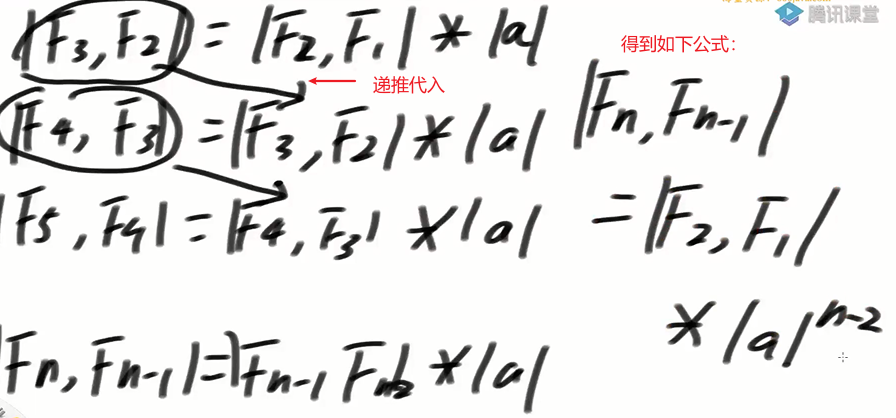 腾讯课堂
|F3, F2| = |F2, F1| * |a|
递推代入
|F4, F3| = |F3, F2| * |a|
|F5, F4| = |F4, F3| * |a|
|Fn, Fn-1| = |Fn-1 Fn-2| * |a|
得到如下公式：
|Fn, Fn-1|
= |F2, F1|
* |a|^n-2